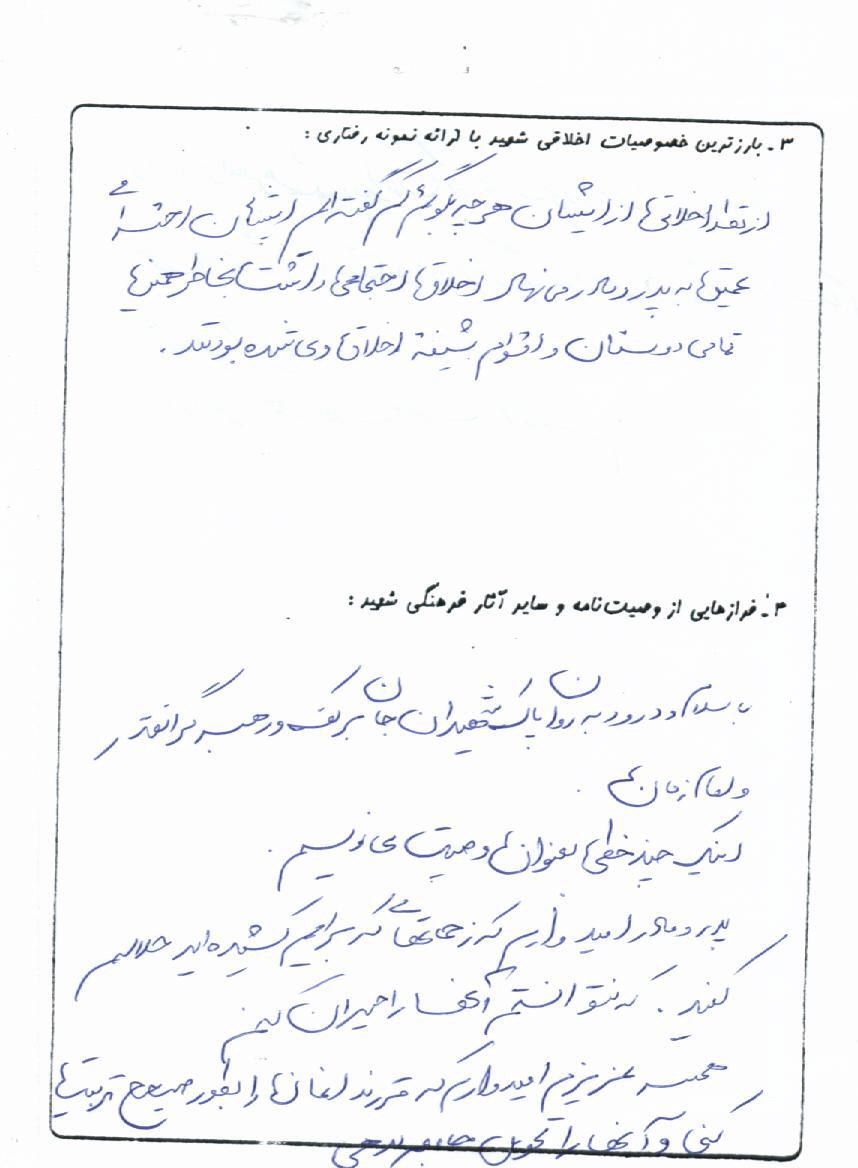 ۳ـ بارزترین خصوصیات اخلاقی شهید با ارائه نمونه رفتاری :
از نظر اخلاقی از ایشان هر چه بگویم کم گفته‌ام ایشان احترامی
عمیق به پدر و مادر می نهاد اخلاق اجتماعی داشت بخاطر همین
تمامی دوستان و اقوام شیفته اخلاق وی شده بودند .
۴ـ فرازهایی از وصیت‌نامه و سایر آثار فرهنگی شهید :
با سلام و درود به روان پاک شهیدان جان بر کف و رهبر گرانقدر
و امام زمان
اینک چند خطی بعنوان وصیت می نویسم .
پدر و مادر امید وارم که زحماتی که برایم کشیده اید حلالم
کنید . که نتوانستم آنها را جبران کنم
همسر عزیزم امیدوارم که فرزندانمان را بطور صحیح تربیت
کنی و آنها را تحویل جامعه دهی